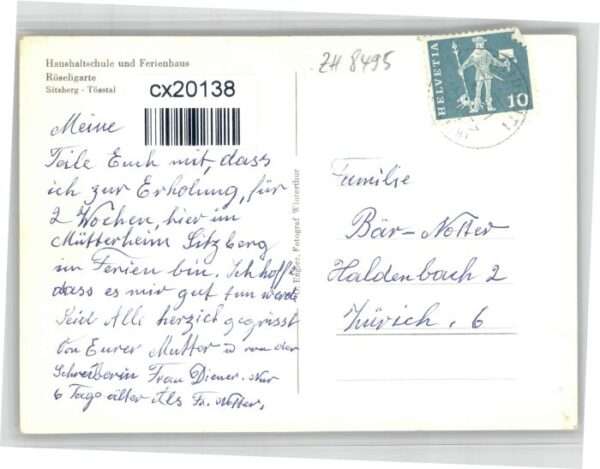 Haushaltschule und Ferienhaus
Röseligarte
Sitzberg - Tösstal
cx20138
ZH 8495
HELVETIA
10
Meine
Teile Euch mit, dass
ich zur Erholung, für
2 Wochen, hier im
Mütterheim Sitzberg
im Ferien bin. Ich hoffe
dass es mir gut tun werde
Seid Alle herzich gegrüsst
Von Eurer Mutter u von der
Schreiberin Frau Diener. Nur
6 Tage älter Als Fr. Notter.
Fotograf Winterthur
Familie
Bär-Notter
Haldenbach 2
Zürich. 6